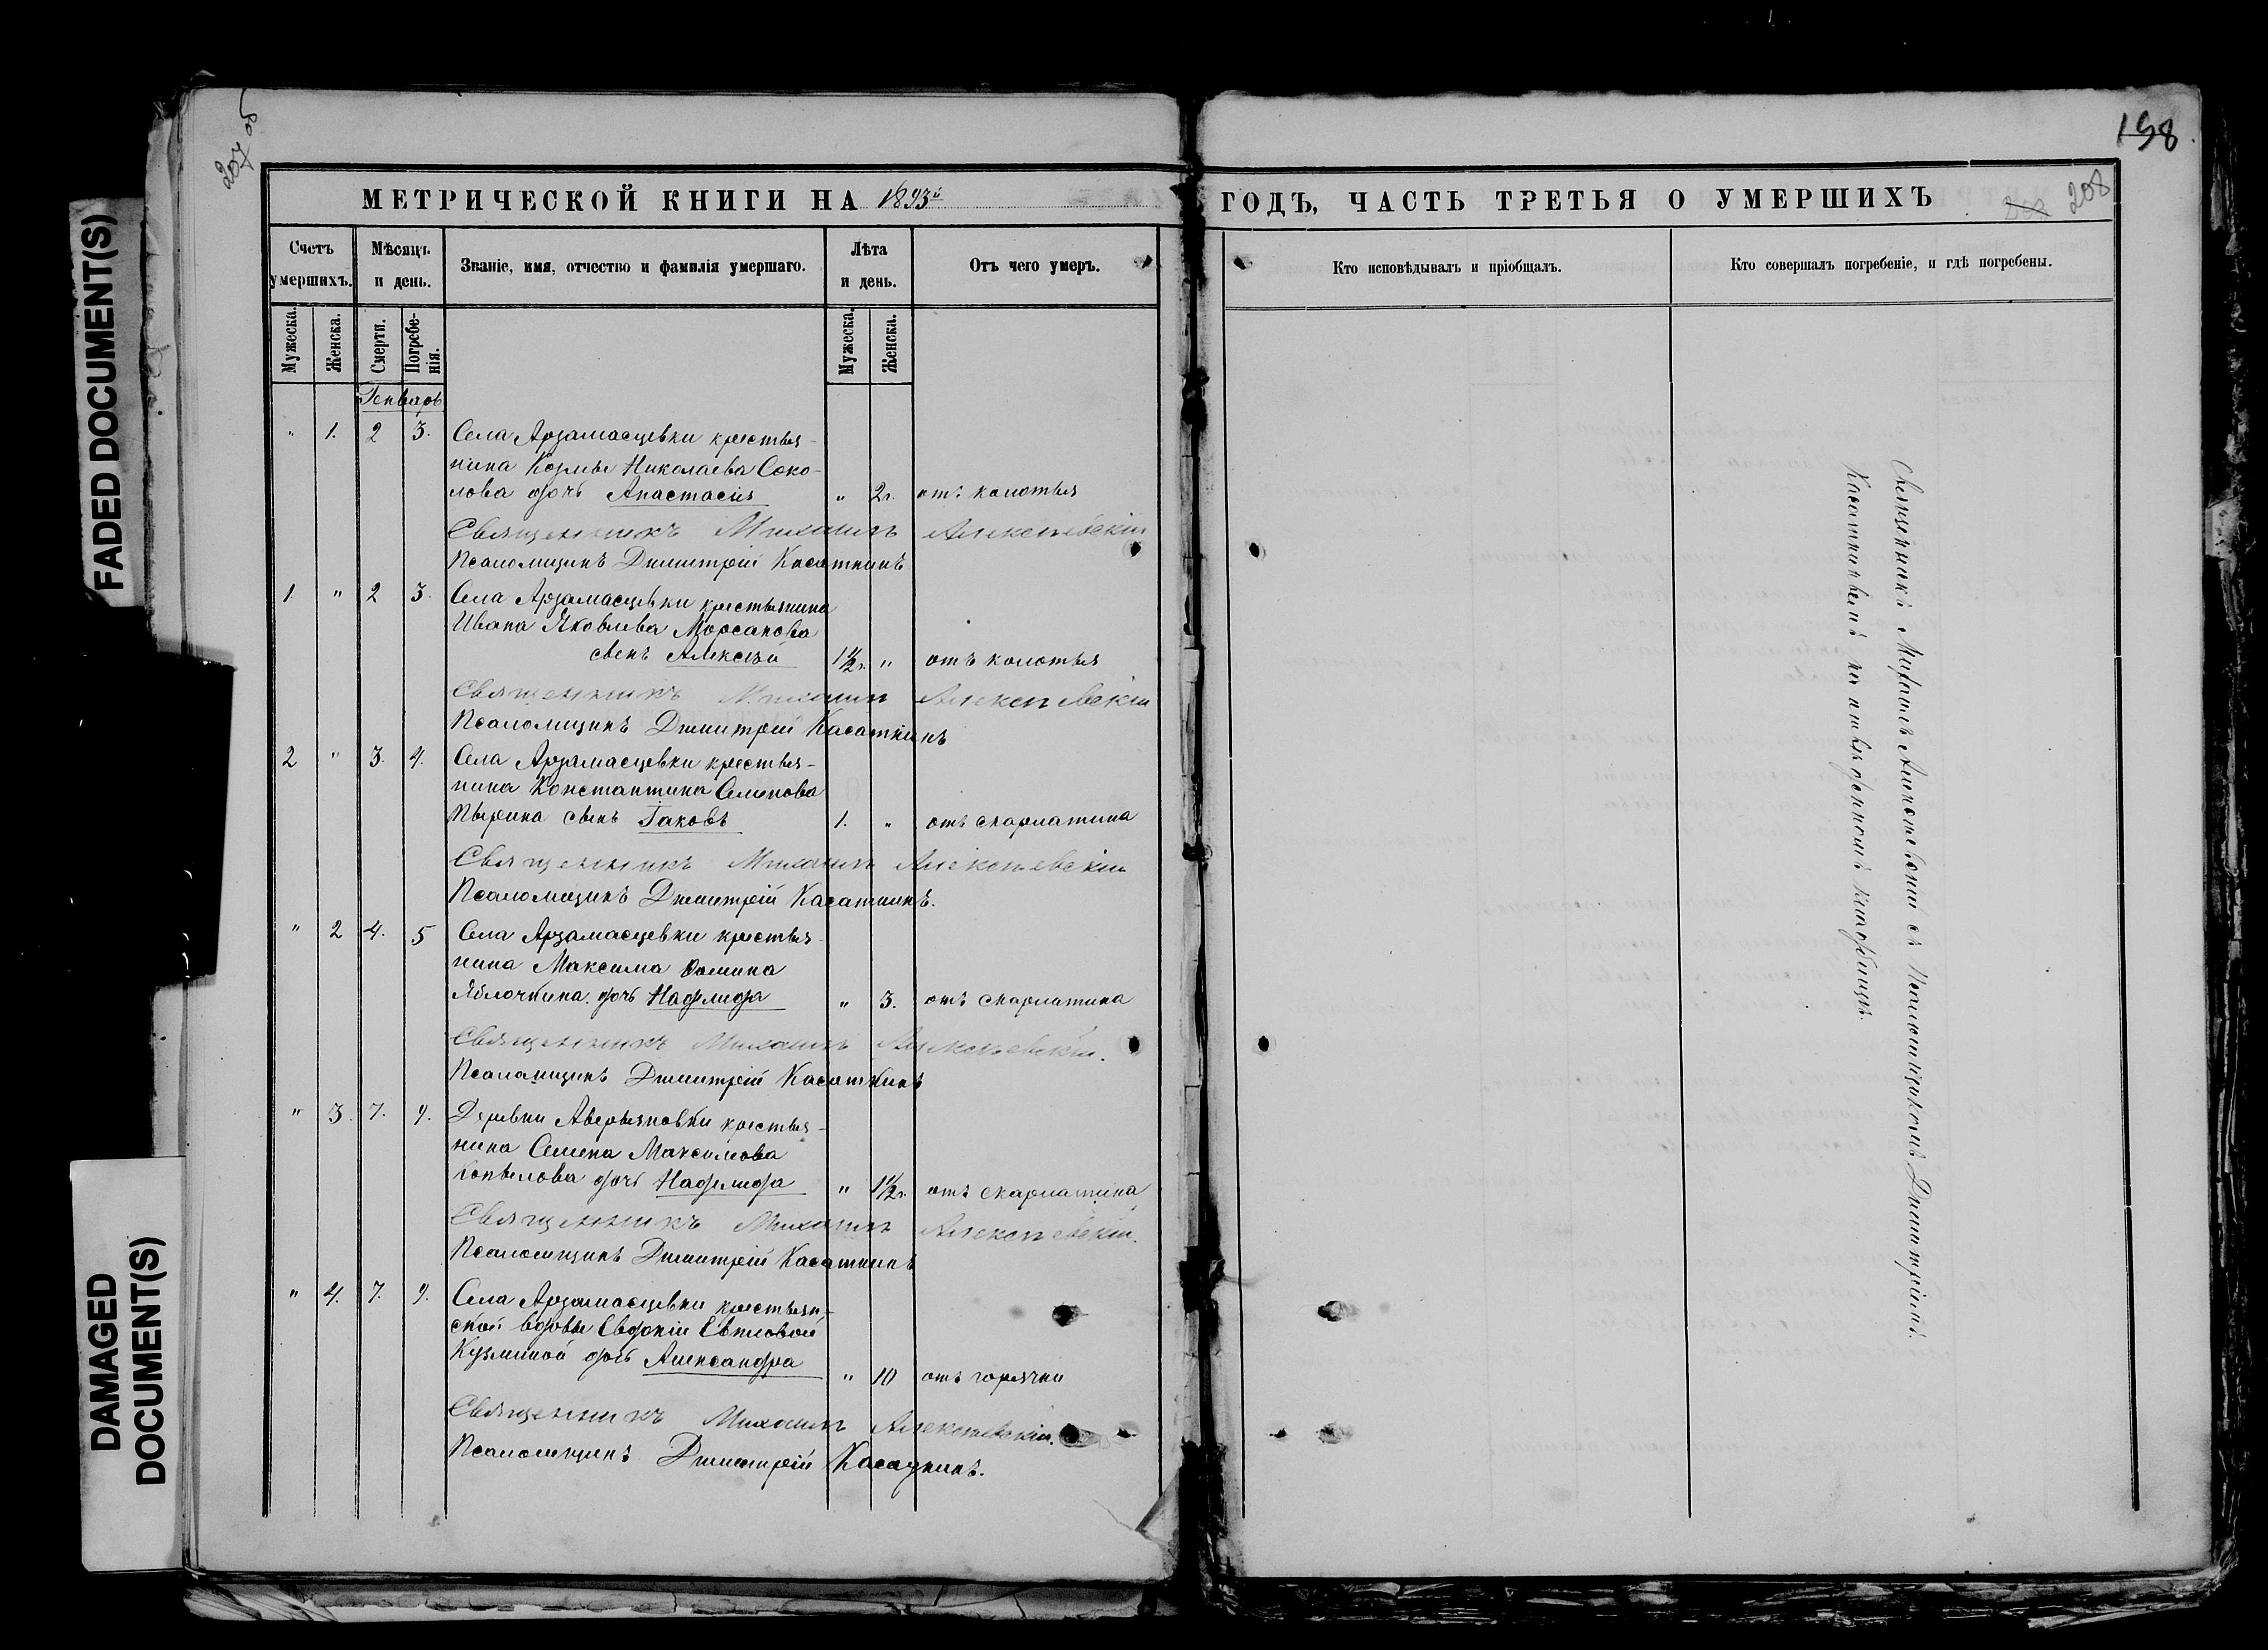 FADED DOCUMENT(S)
DAMAGED
DOCUMENT(S)
207 об
198
208
МЕТРИЧЕСКОЙ КНИГИ НА 1893й
ГОДЪ, ЧАСТЬ ТРЕТЬЯ О УМЕРШИХЪ
Счетъ умершихъ.
Мѣсяцъ и день.
Званіе, имя, отчество и фамилія умершаго.
Лѣта и день.
Отъ чего умеръ.
Кто исповѣдывалъ и пріобщалъ.
Кто совершалъ погребеніе, и гдѣ погребены.
Мужеска. Женска. Смерти. Погребенія. Мужеска. Женска.
Генварь
" 1. 2 3. Села Арзамасцевки крестья-
нина Козмы Николаева Соко-
лова дочь Анастасія " 2г. отъ колотья
Священникъ Михаилъ Алексѣевскій
Псаломщикъ Димитрій Касаткинъ
1 " 2 3. Села Арзамасцевки крестьянина
Ивана Яковлева Морсакова
сынъ Алексѣй 1½г. " отъ колотья
Священникъ Михаилъ Алексѣевскій
Псаломщикъ Димитрій Касаткинъ
2 " 3. 4. Села Арзамасцевки крестья-
нина Константина Семенова
Пырина сынъ Іаковъ 1. " отъ скарлатина
Священникъ Михаилъ Алексѣевскій
Псаломщикъ Димитрій Касаткинъ.
" 2 4. 5 Села Арзамасцевки крестья-
нина Максима Фомина
Яблочкина дочь Надежда " 3. отъ скарлатина
Священникъ Михаилъ Алексѣевскій.
Псаломщикъ Димитрій Касаткинъ
" 3. 7. 9. Деревни Аверьяновки крестья-
нина Семена Максимова
Копылова дочь Надежда " 1½г. отъ скарлатина
Священникъ Михаилъ Алексѣевскій.
Псаломщикъ Димитрій Касаткинъ
" 4. 7. 9. Села Арзамасцевки крестьян-
ской вдовы Евдокіи
Кузминой дочь Александра " 10 отъ горячки
Священникъ Михаилъ Алексѣевскій.
Псаломщикъ Димитрій Касаткинъ.
Священникъ Михаилъ Алексѣевскій съ Псаломщикомъ Димитріемъ
Касаткинымъ на кладбищѣ.